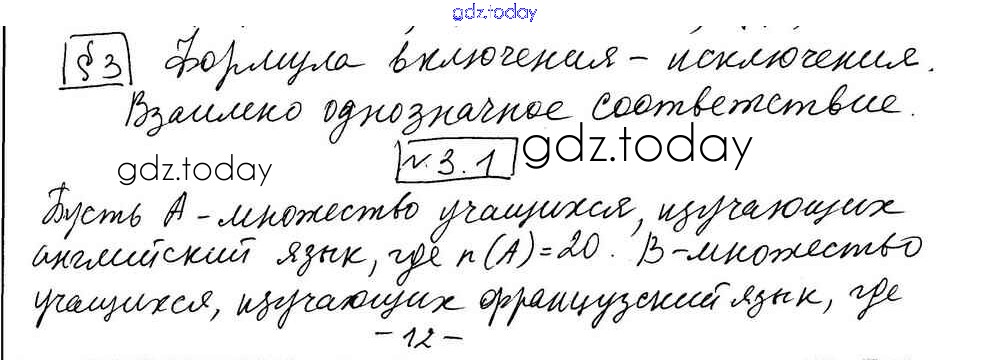 gdz.today
§3 Формула включения – исключения.
Взаимно однозначное соответствие.
gdz.today №3.1 gdz.today
Пусть A – множество учащихся, изучающих
английский язык, где n(A)=20. B – множество
учащихся, изучающих французский язык, где
– 12 –